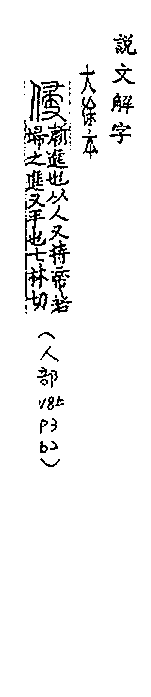 說文解字
大徐本
侵 漸進也从人又持帚若
埽之進又手也七林切
(人部 V8上 P3 b2)